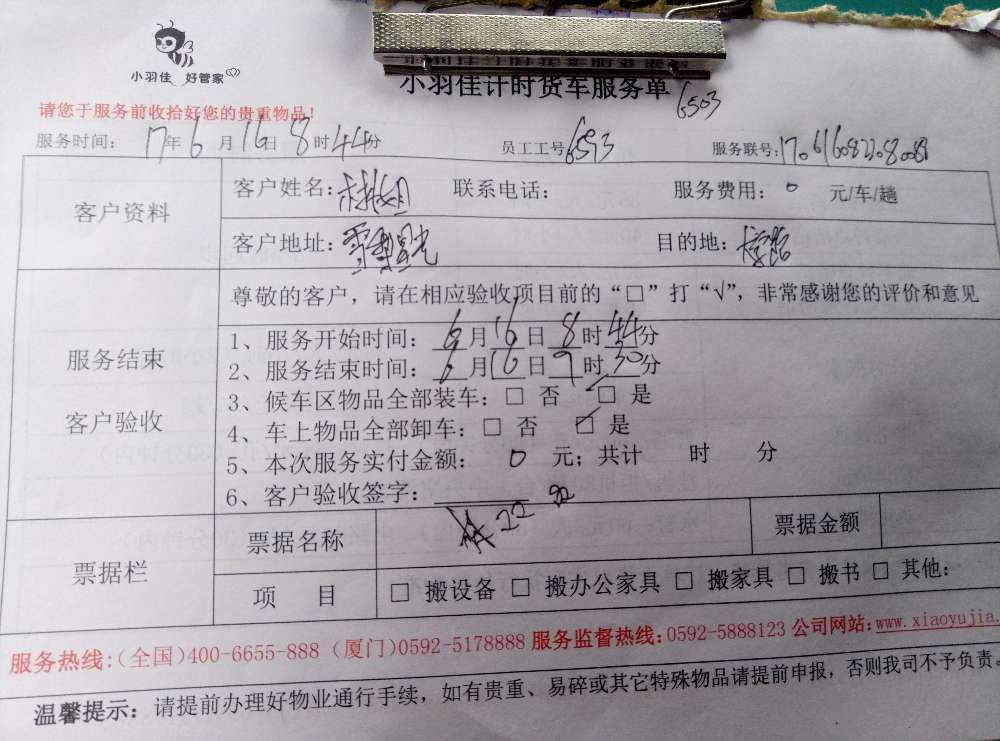 小羽佳 好管家
小羽佳计时货车服务单
6503
请您于服务前收拾好您的贵重物品!
服务时间: 17年6月16日8时44分 员工工号 服务联号:
客户资料 客户姓名: 联系电话: 服务费用: 0 元/车/趟
客户地址: 目的地:
尊敬的客户,请在相应验收项目前的“□”打“√”,非常感谢您的评价和意见
服务结束
客户验收
1、服务开始时间: 6月16日8时44分
2、服务结束时间: 6月16日9时30分
3、候车区物品全部装车: □ 否 ☑ 是
4、车上物品全部卸车: □ 否 ☑ 是
5、本次服务实付金额: 0 元; 共计 时 分
6、客户验收签字:
票据栏 票据名称 票据金额
项 目 □ 搬设备 □ 搬办公家具 □ 搬家具 □ 搬书 □ 其他:
服务热线:(全国)400-6655-888 (厦门)0592-5178888 服务监督热线:0592-5888123 公司网站:www.xiaoyujia.
温馨提示: 请提前办理好物业通行手续,如有贵重、易碎或其它特殊物品请提前申报,否则我司不予负责。